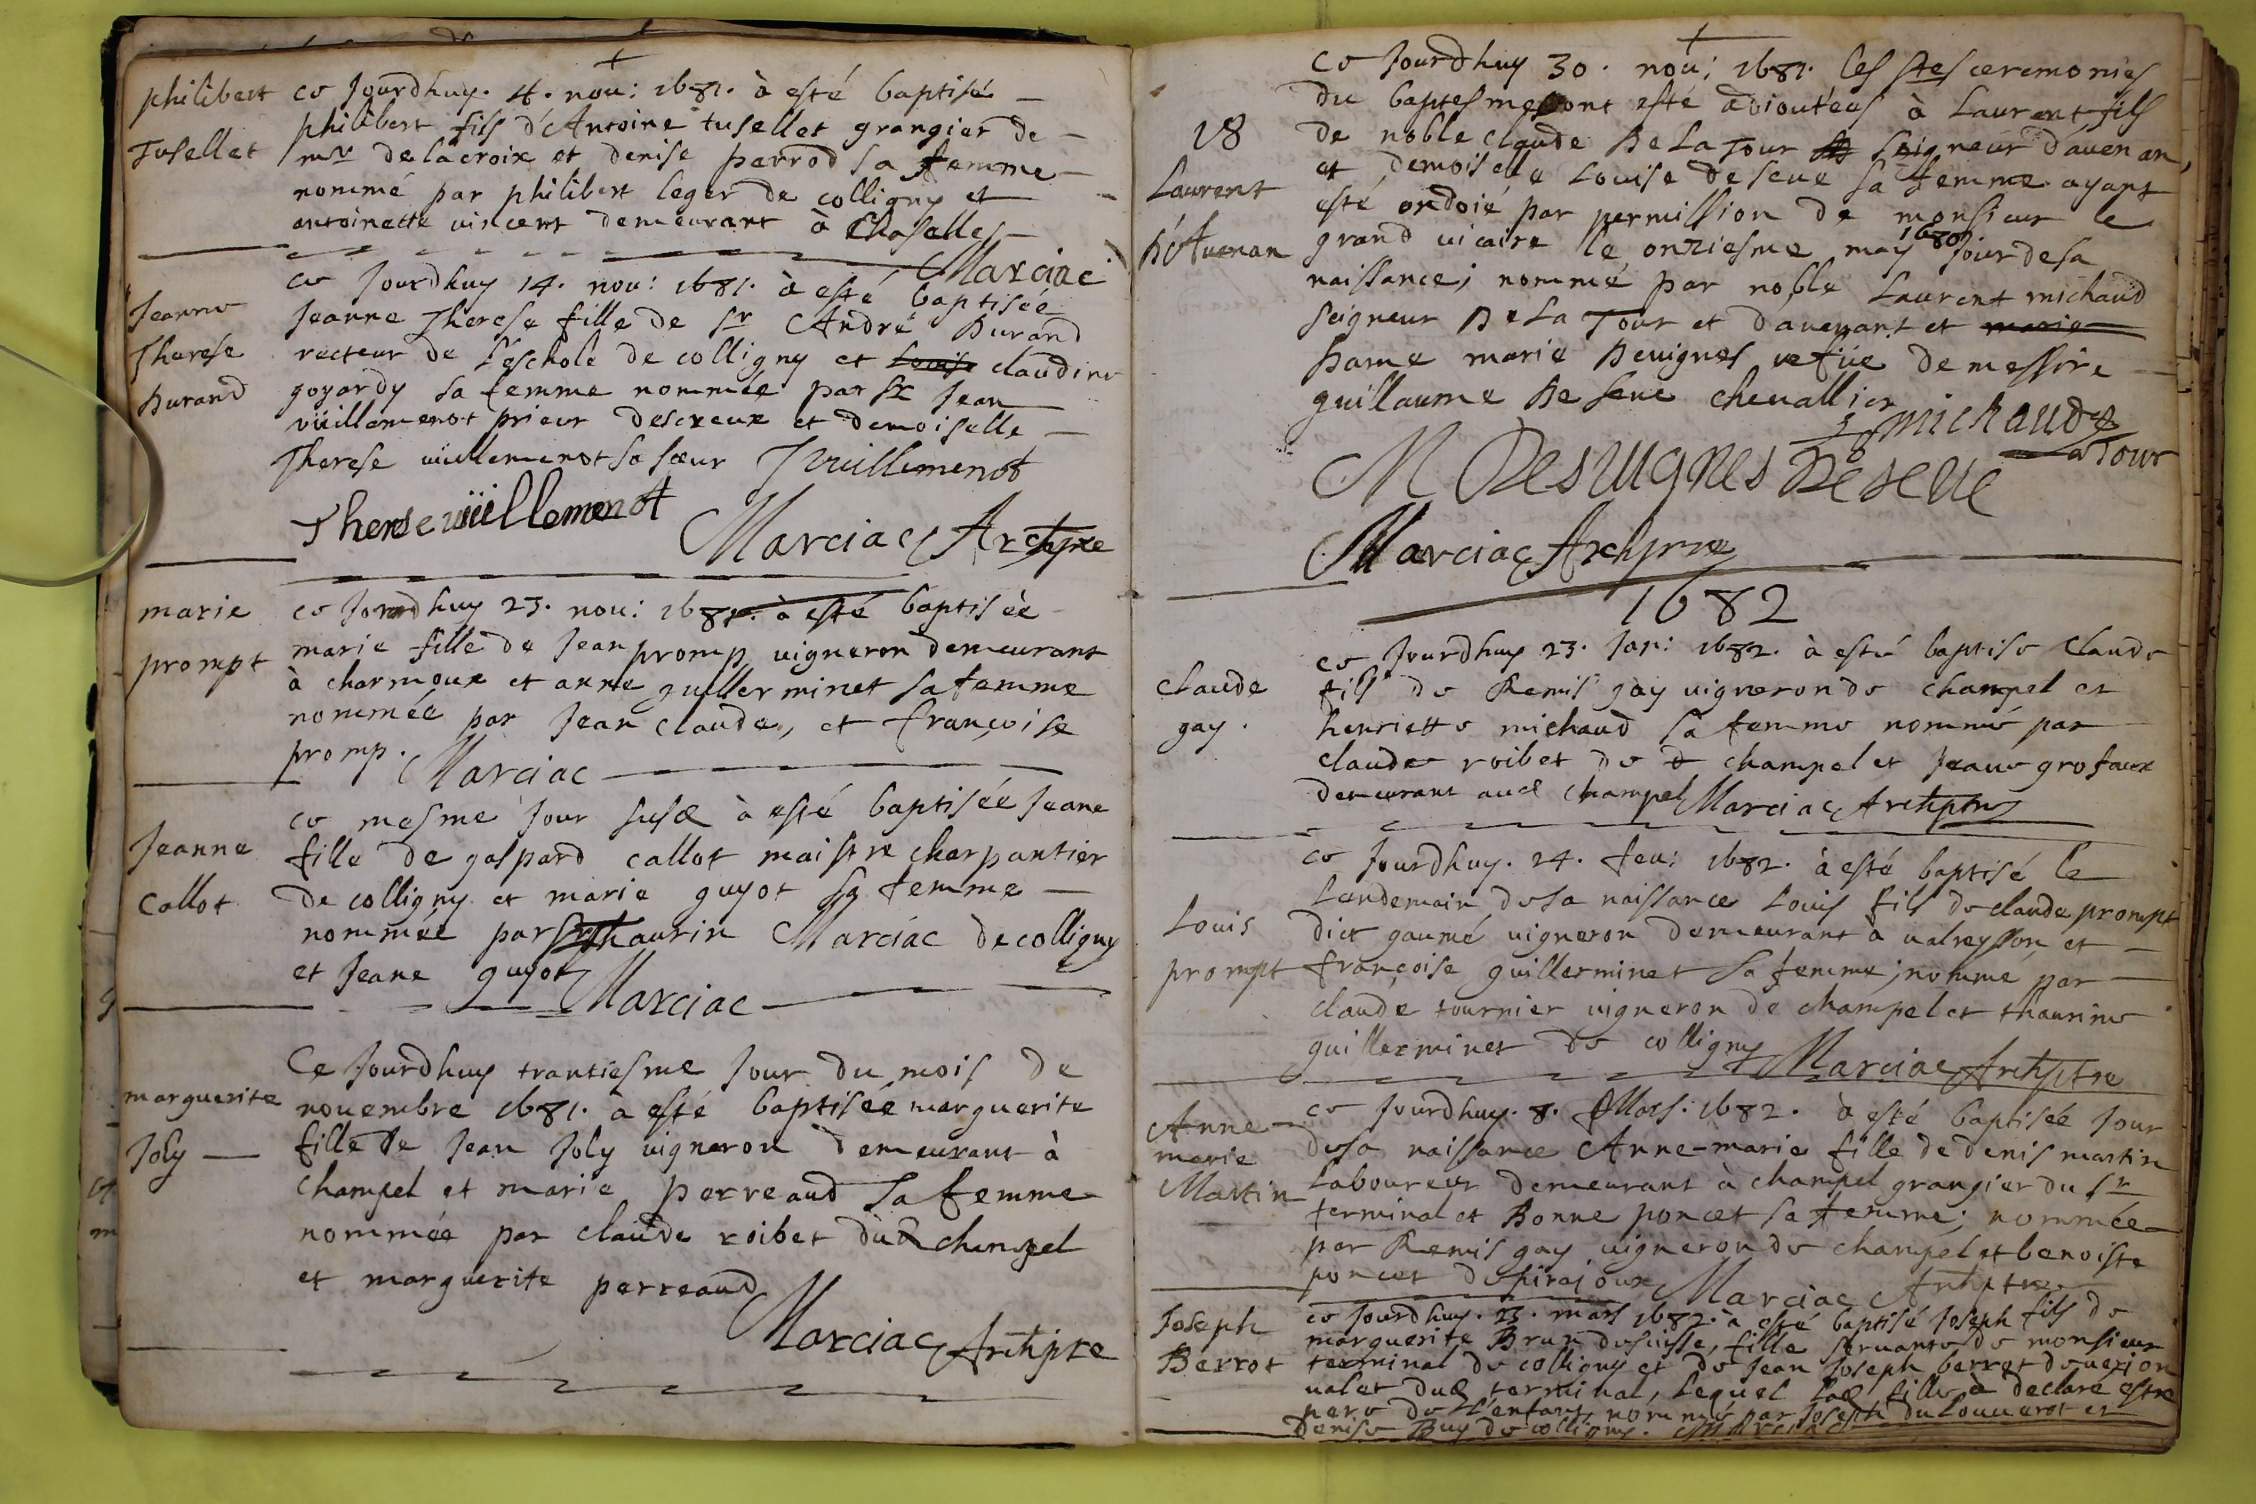 philibert
Tusellet
ce Jourdhuy. 4. nou: 1681. à esté baptisé
philibert fils d'Antoine tusellet grangier de
mr de lacroix et denise perrod sa femme
nommé par philibert leger de colligny et
antoinette vincent demeurant à Chaselles
Marciac
Jeanne
Therese
Durand
ce Jourdhuy 14. nou: 1681. à esté baptisée
Jeanne Therese fille de sr André Durand
recteur de l'eschole de colligny et Louise claudine
goyardy sa femme nommée par sr Jean
vüillemenot prieur descreux et demoiselle
Therese vuillemenot sa sœur J vuillemenot
Therese vüillemenot
Marciac Archpre
marie
prompt
ce Jourdhuy 23. nou: 1681. à esté baptisée
marie fille de Jean promp vigneron demeurant
à charmoux et anne guillerminet sa femme
nommée par Jean claude, et françoise
promp. Marciac
Jeanne
Callot
ce mesme Jour susd à esté baptisée Jeane
fille de gaspard callot maistre charpantier
de colligny et marie guyot sa femme
nommée par thaurin Marciac de colligny
et Jeane guyot Marciac
marguerite
Joly
Ce Jourdhuy trantiesme Jour du mois de
nouembre 1681. à esté baptisée marguerite
fille de Jean Joly vigneron demeurant à
champel et marie perreaud sa femme
nommée par claude roibet dud champel
et marguerite perreaud
Marciac Archpre
18
Laurent
D'Auenan
ce Jourdhuy 30. nou: 1681. les stes ceremonies
du baptesme ont esté adioutées à Laurent fils
de noble claude De La Tour seigneur d'auenan,
et demoiselle Louise de seue sa femme ayant
esté ondoié par permission de monsieur le
grand vicaire le onziesme may 1680 jour de sa
naissance; nommé par noble Laurent michaud
seigneur De La Tour et d'auenant et marie
Dame marie Deuignes vefüe de messire
guillaume De seue cheuallier
michaud
la Tour
M Desuignes De seue
Marciac Archpre
1682
claude
gay.
ce Jourdhuy 23. Jan: 1682. à esté baptisé Claude
fils de Remis gay vigneron de champel et
henriette michaud sa femme nommé par
claude roibet de champel et Jeane grofaux
demeurant aud champel Marciac Archptre
Louis
prompt
ce Jourdhuy. 24. feu: 1682. à esté baptisé le
Lendemain de sa naissance Louis fils de claude prompt
dict gaumé vigneron demeurant à valreysson et
françoise guillerminet sa femme; nommé par
claude tournier vigneron de champel et thaurine
guillerminet de colligny Marciac Archptre
Anne
marie
Martin
ce Jourdhuy. 8. Mars: 1682. à esté baptisée Jour
de sa naissance Anne-marie fille de denis martin
Laboureur demeurant à champel grangier du sr
terminal et Bonne poncet sa femme; nommée
par Remis gay vigneron de champel et benoiste
poncet de pirajoux Marciac Archptre
Joseph
Berrot
ce Jourdhuy. 23. mars 1682. à esté baptisé Joseph fils de
marguerite Brun de cuisse, fille seruante de monsieur
terminal de colligny et de Jean Joseph berrot de
valet dud terminal, Lequel lad fille à declaré estre
pere de L'enfant nommé par Joseph du Louuerot et
Denise Buy de colligny. Marciac